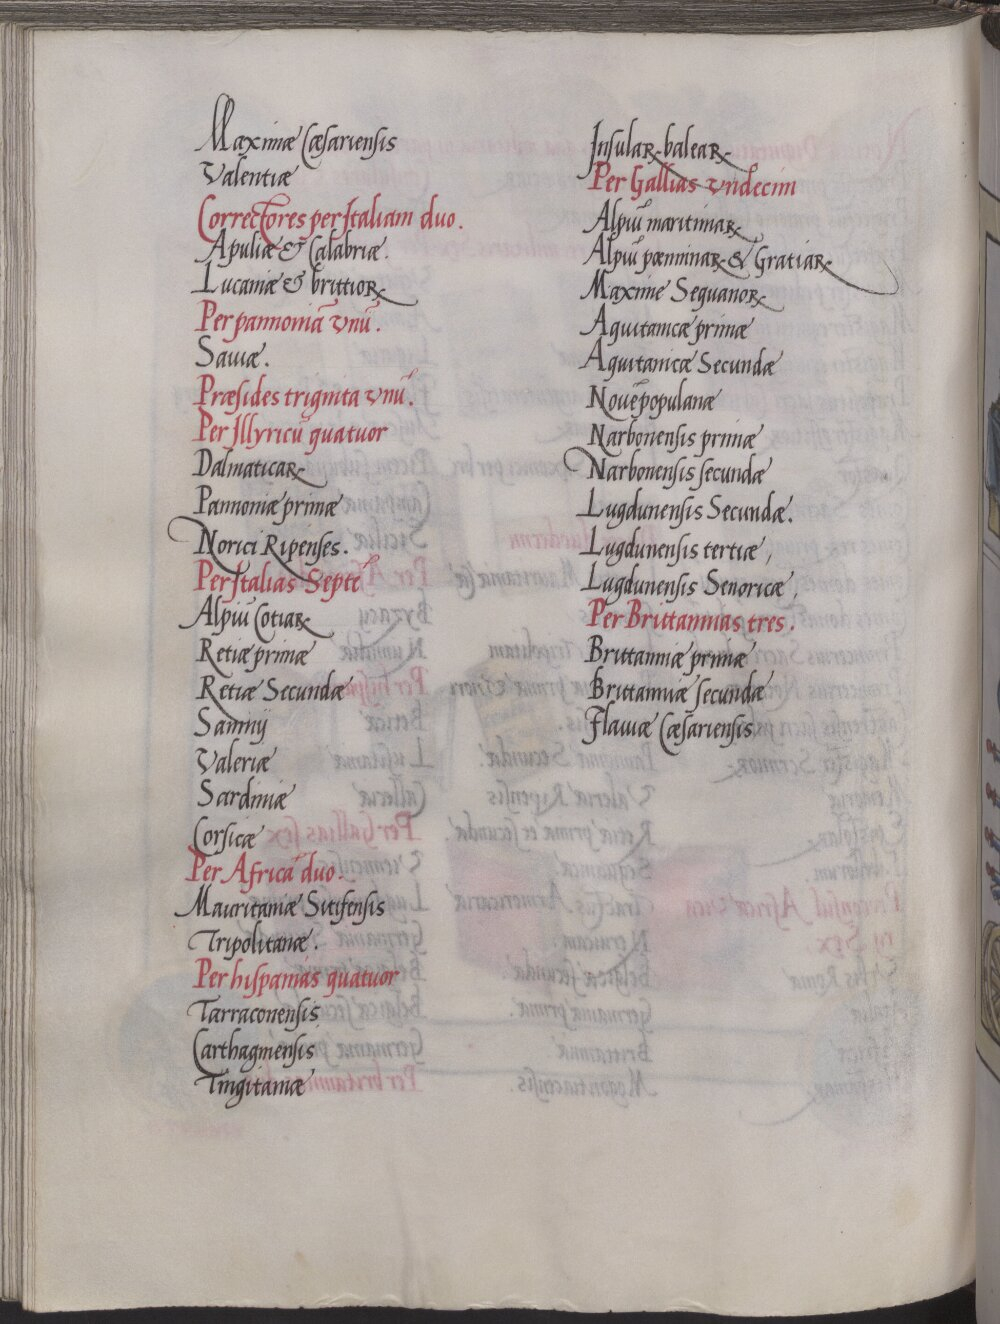 Maximæ Cæsariensis
Valentiæ
Correctores per Italiam duo.
Apuliæ & Calabriæ.
Lucaniæ & brittioꝝ
Per pannoniā vnū.
Sauiæ.
Præsides triginta vnū.
Per Illyricū quatuor
Dalmaticaꝝ
Pannoniæ primæ
Norici Ripenses.
Per Italias Septē
Alpiū Cotiaꝝ
Retiæ primæ
Retiæ Secundæ
Samnij
Valeriæ
Sardiniæ
Corsicæ
Per Africā duo.
Mauritaniæ Sitifensis
Tripolitanæ.
Per hispanias quatuor
Tarraconensis
Carthaginensis
Tingitaniæ
Insulaꝝ baleaꝝ
Per Gallias vndecim
Alpiū maritimaꝝ
Alpiū pæninaꝝ & Gratiaꝝ
Maxime Sequanoꝝ
Aquitanicæ primæ
Aquitanicæ Secundæ
Nouēpopulanæ
Narbonensis primæ
Narbonensis secundæ
Lugdunensis Secundæ.
Lugdunensis tertiæ,
Lugdunensis Senoricæ,
Per Brittannias tres.
Brittanniæ primæ
Brittanniæ secundæ
Flauiæ Cæsariensis